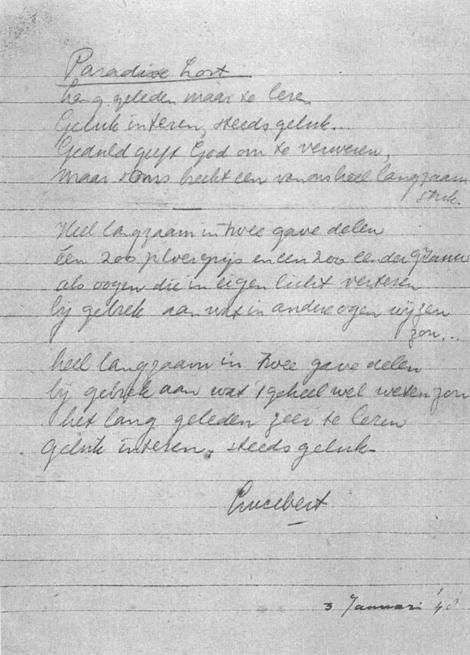 Paradise Lost
Lang geleden maar te leren
Geluk interen, steeds geluk...
Geduld geeft God om te verweren,
maar soms breekt een van ons heel langzaam
stuk.
Heel langzaam in twee gave delen
Een zoo en een zoo eender
als oogen die in eigen licht verteren
bij gebrek aan wat in andere ogen wijzen
zou...
heel langzaam in twee gave delen
bij gebrek aan wat 't geheel wel weten zou
het lang geleden zeer te leren
Geluk interen, steeds geluk.
Lucebert
3 Januari '4